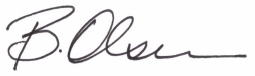 B. Olsen